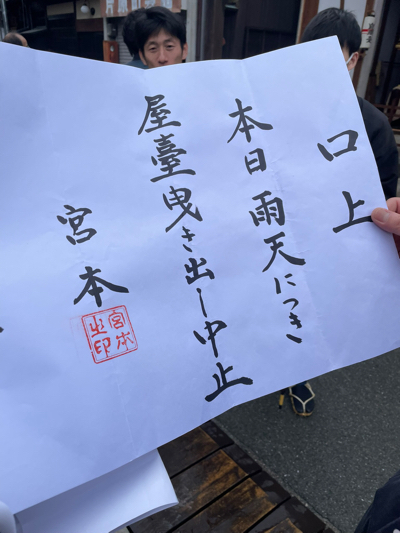 口上
本日雨天につき
屋臺曳き出し中止
宮本
宮本
之印